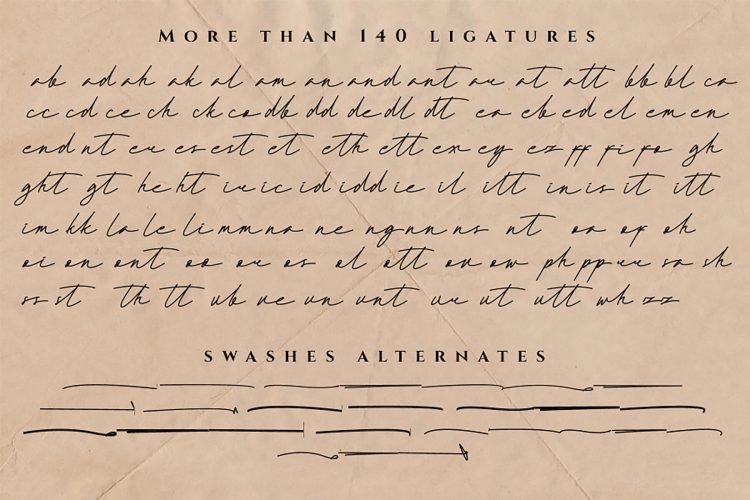 More than 140 ligatures
ab ad ah ak al am an and ant au at att bb bl ca
cc cd ce ch ck co db dd de dl dt ea eb ed el em en
end nt eu es est et eth ett ex ey ez ff fi fo gh
ght gt he ht iu ic id idd ie il ill in is it itt
im kk la le li mm na ne ng nn ns nt oa of oh
oi on ont oo ou os ol ott ov ow ph pp ru sa sh
ss st th tt ub ue un unt ur ut utt wh zz
swashes alternates